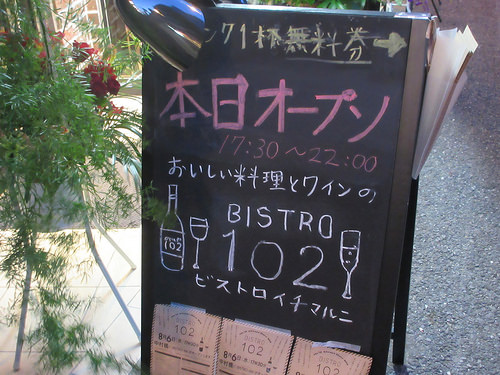 ンク1杯無料券→
本日オープン
17:30～22:00
おいしい料理とワインの、
BISTRO
102
102
ビストロイチマルニ
BISTRO
102
8月6日
BISTRO
102
8月6日
102